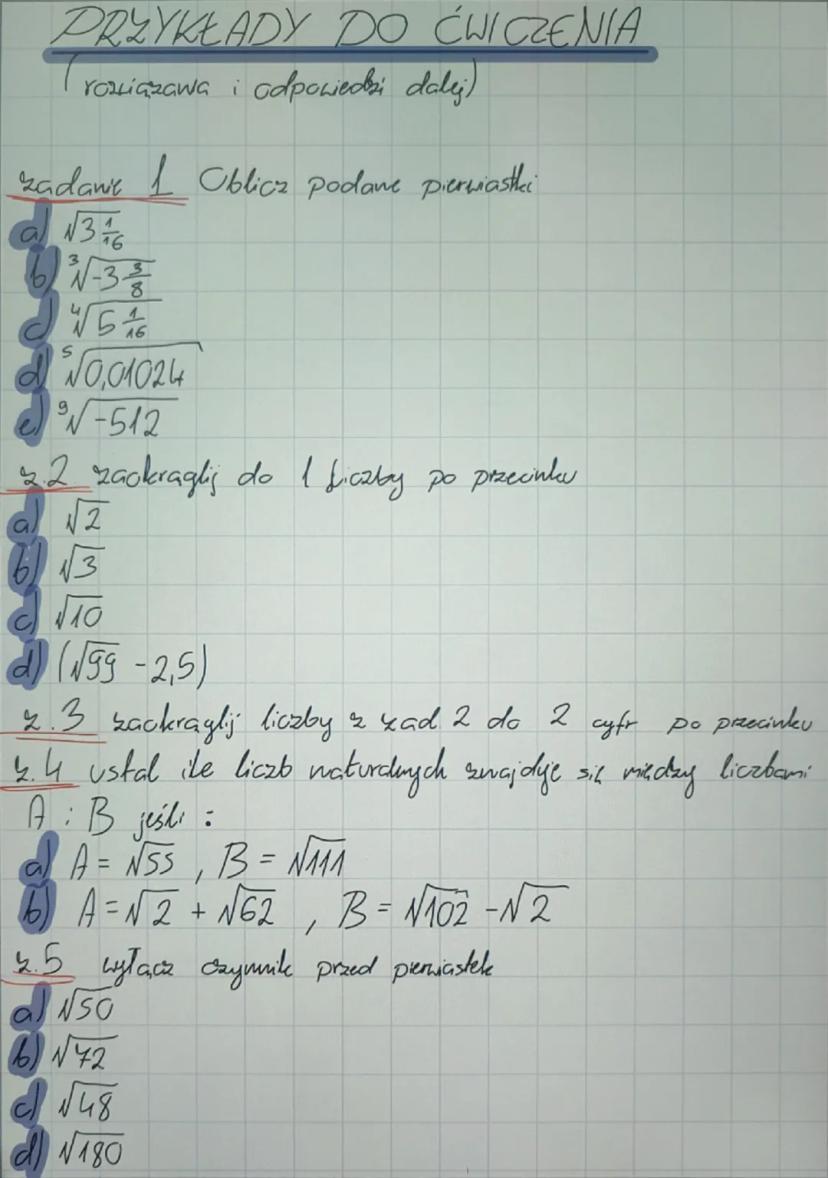 PRZYKŁADY DO ĆWICZENIA
(rozwiązawa i odpowiedzi dalej)
zadanie 1 Oblicz podane pierwiastki
a) √3 1/16
b) ³√-3 3/8
c) ⁴√5 1/16
d) ⁵√0,01024
e) ⁹√-512
z.2 zaokrąglij do 1 liczby po przecinku
a) √2
b) √3
c) √10
d) (√99 - 2,5)
z.3 zaokrąglij liczby z zad 2 do 2 cyfr po przecinku
z.4 ustal ile liczb naturalnych znajdyje się między liczbami
A i B jeśli :
a) A = √55 , B = √111
b) A = √2 + √62 , B = √102 - √2
z.5 wyłącz czynnik przed pierwiastek
a) √50
b) √72
c) √48
d) √180